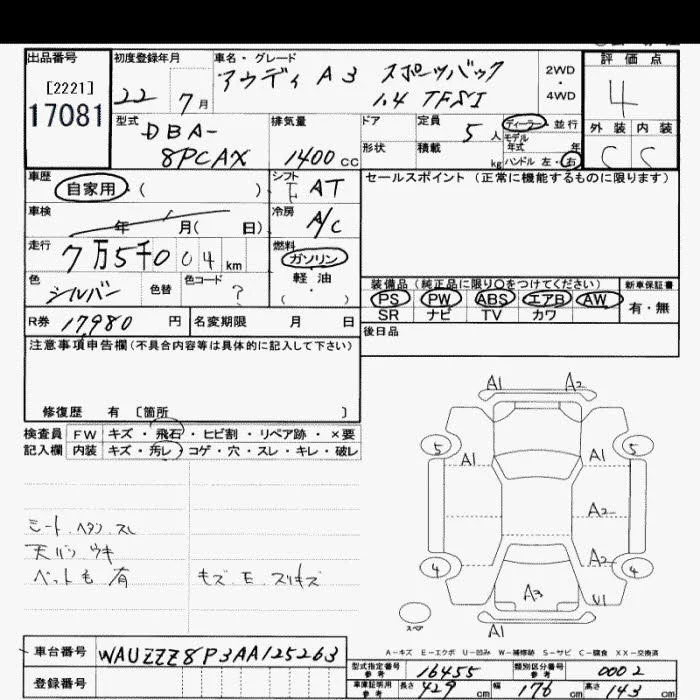 出品番号 初度登録年月 車名・グレード 評価点
[2221]
17081
22 7月
アウディ A3 スポーツバック
1.4 TFSI
2WD
・
4WD
4
型式 排気量 ドア 定員 5人 ディーラー・並行 外装 内装
DBA-
8PCAX
1400cc
形状 積載 kg
モデル
年式 年
ハンドル 左・右
C C
車歴 シフト セールスポイント (正常に機能するものに限ります)
自家用 ( ) F AT
車検 冷房
年 月( 日) A/C
走行 燃料
7万5千004km ガソリン
軽油
・
( )
色 色替 色コード
シルバー ?
装備品 (純正品に限り○をつけてください) 新車保証書
PS PW ABS エアB AW 有・無
SR ナビ TV カワ
R券 17,980円 名変期限 月 日
後日品
注意事項申告欄(不具合内容等は具体的に記入して下さい)
修復歴 有 〔箇所 〕
検査員 FW キズ・飛石・ヒビ割・リペア跡・×要
記入欄 内装 キズ・汚レ・コゲ・穴・スレ・キレ・破レ
A1 A2
5 5
A1 A1
A2
A2
4 4
A3 U1
A1
スペア
シート ヘタリ スレ
天バリ ウキ
ペットも 有 キズ.E.スリキズ
A-キズ E-エクボ U-凹み W-補修跡 S-サビ C-腐食 XX-交換済
車台番号 WAUZZZ8P3AA125263
登録番号
型式指定番号 参考 16455 類別区分番号 参考 0002
車庫証明用 参考 長さ 429cm 幅 176cm 高さ 143cm